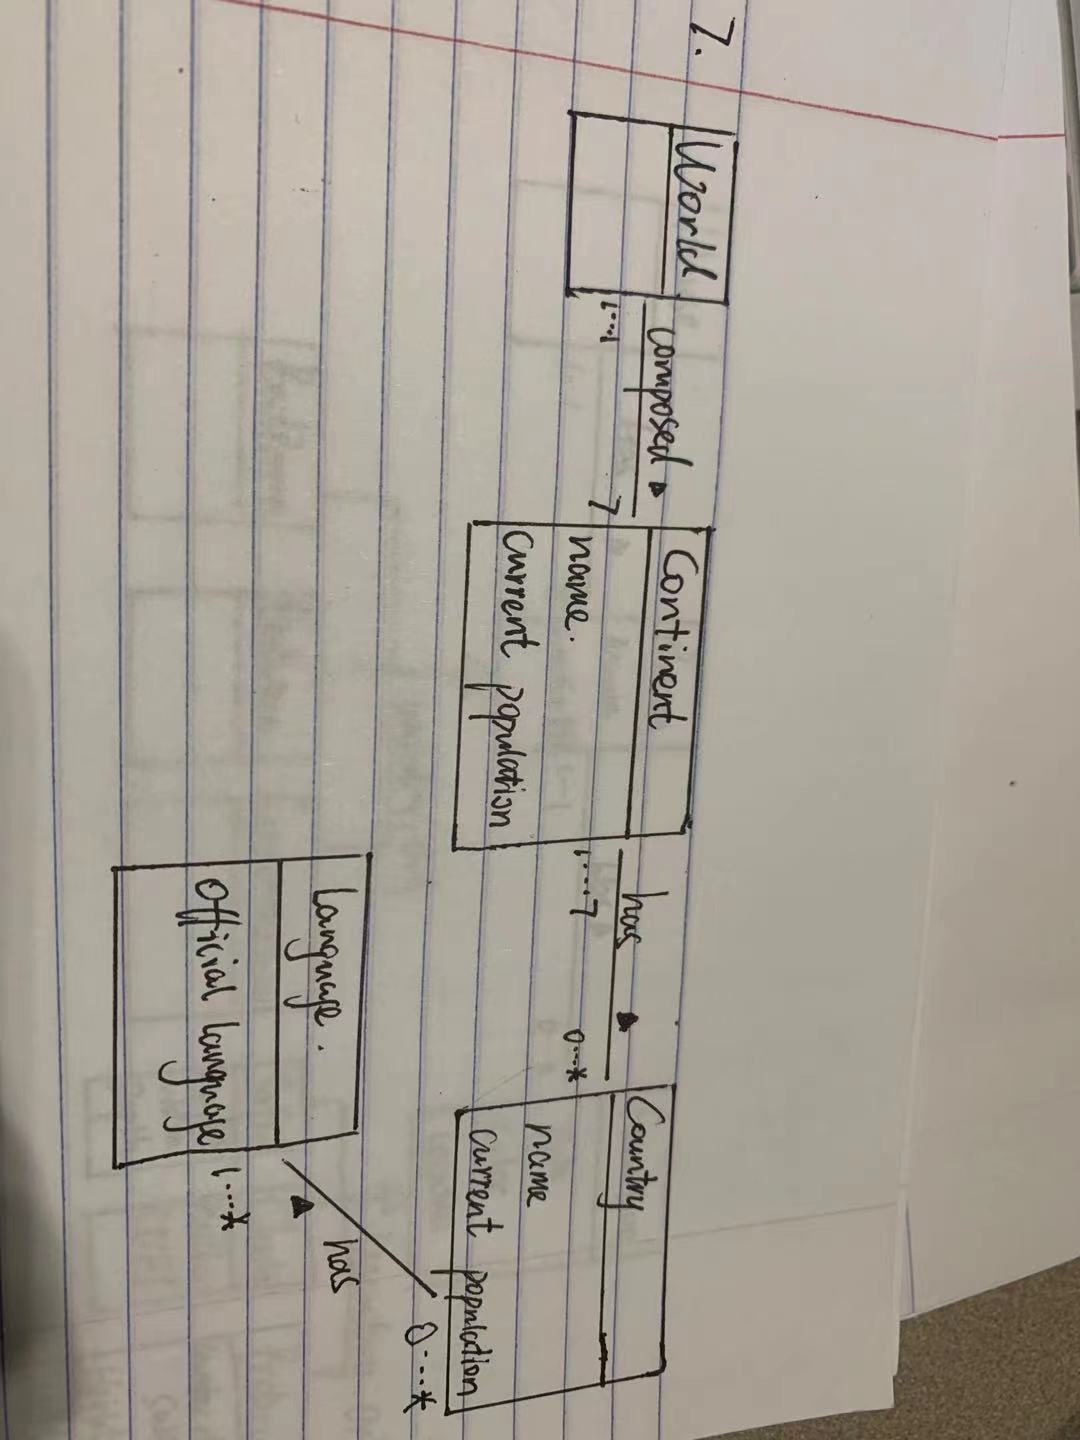 7.
World
composed ▸
1...1
7
Continent
name.
Current population
has ▸
1....7
0...*
Country
name
current population
0...*
has
1...*
Language.
Official language